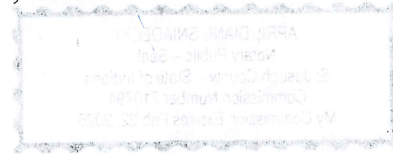 APRIL DIANE SNIADECKI
Notary Public – Seal
St Joseph County – State of Indiana
Commission Number 710794
My Commission Expires Feb 22, 2026